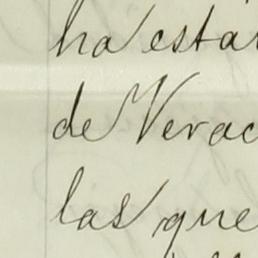 ha está
de Verac
las que